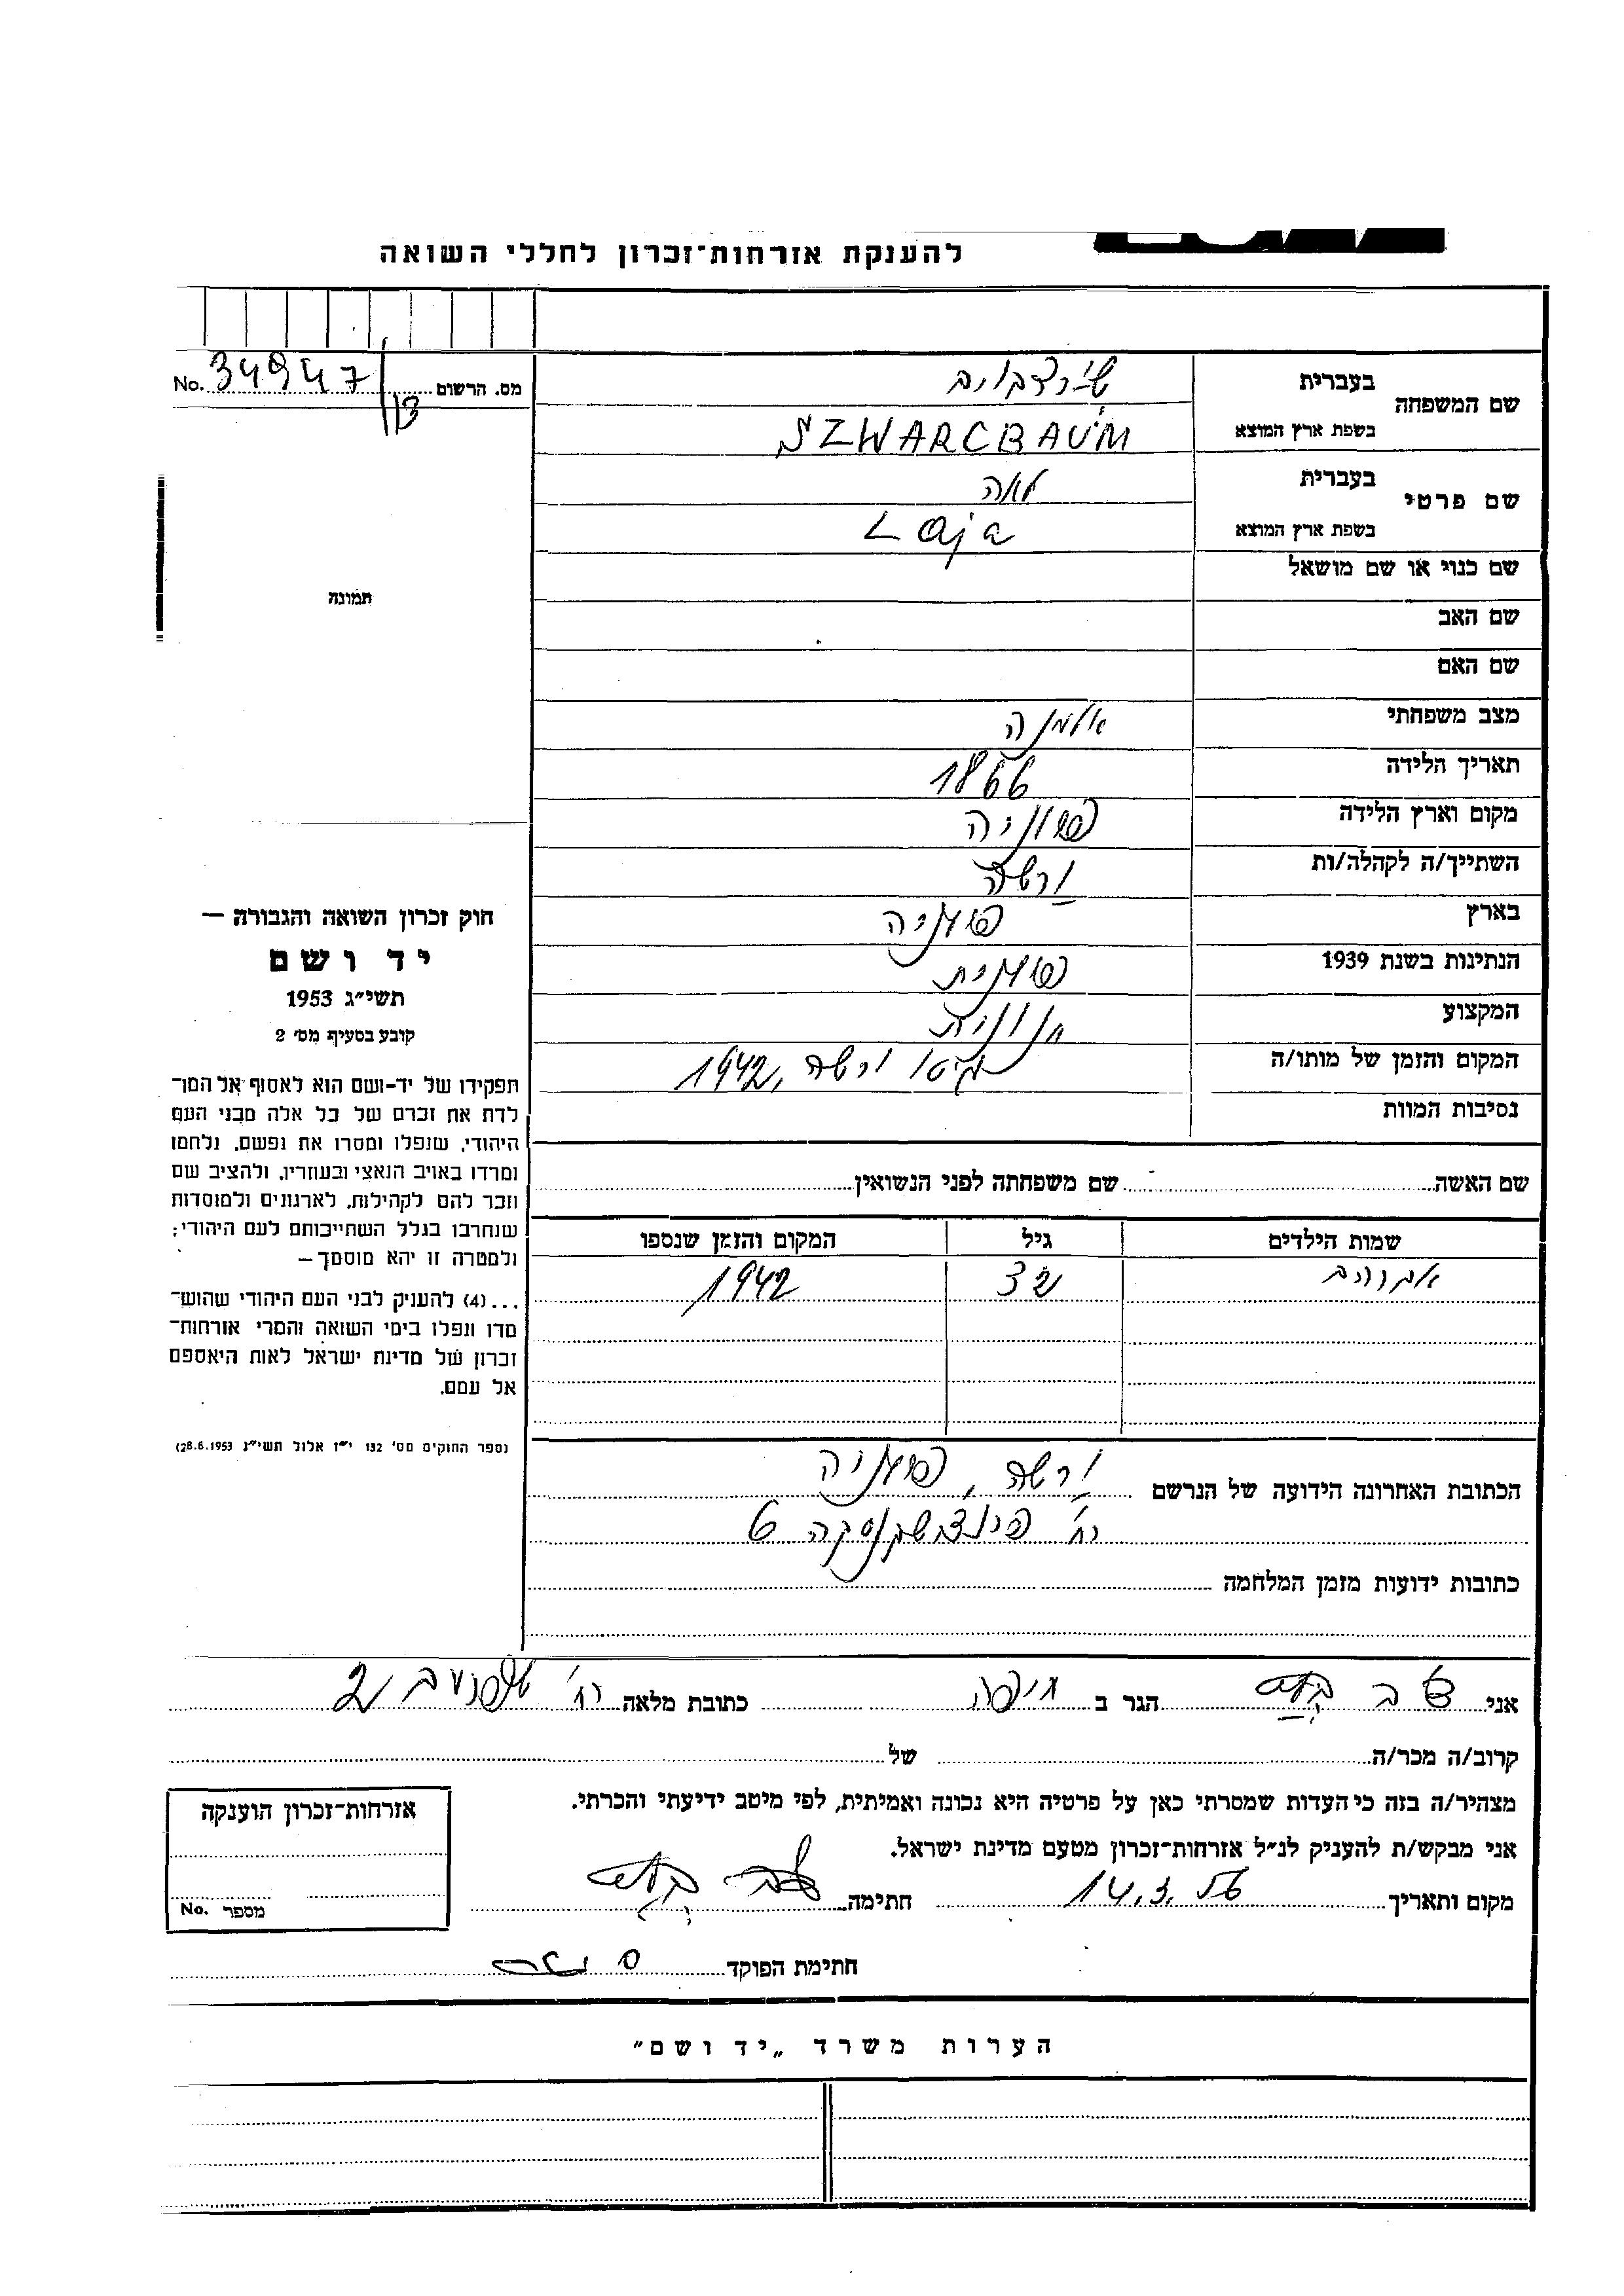 להענקת אזרחות־זכרון לחללי השואה
שם המשפחה בעברית
בשפת ארץ המוצא SZWARCBAUM
שם פרטי בעברית לאה
בשפת ארץ המוצא Laja
שם כנוי או שם מושאל
שם האב
שם האם
מצב משפחתי אלמנה
תאריך הלידה 1866
מקום וארץ הלידה פולניה
השתייך/ה לקהלה/ות ורשה
בארץ פולניה
הנתינות בשנת 1939 פולנית
המקצוע חנונית
המקום והזמן של מותו/ה גיטו ורשה, 1942
נסיבות המוות
שם האשה שם משפחתה לפני הנשואין
שמות הילדים גיל המקום והזמן שנספו
אברהם 1942
הכתובת האחרונה הידועה של הנרשם ורשה, פולניה
רח' 6
כתובות ידועות מזמן המלחמה
מס. הרשום No. 34947/13
תמונה
חוק זכרון השואה והגבורה —
יד ושם
תשי״ג 1953
קובע בסעיף מס׳ 2
תפקידו של יד-ושם הוא לאסוף אל המו־
לדת את זכרם של כל אלה מבני העם
היהודי, שנפלו ומסרו את נפשם, נלחמו
ומרדו באויב הנאצי ובעוזריו, ולהציב שם
וזכר להם לקהילות, לארגונים ולמוסדות
שנחרבו בגלל השתייכותם לעם היהודי;
ולמטרה זו יהא מוסמך —
...(4) להעניק לבני העם היהודי שהוש־
מדו ונפלו בימי השואה והמרי אזרחות־
זכרון של מדינת ישראל לאות היאספם
אל עמם.
(ספר החוקים מס׳ 132 י״ז אלול תשי״ג 28.8.1953)
אני הגר ב חיפה כתובת מלאה רח' 2
קרוב/ה מכר/ה של
מצהיר/ה בזה כי העדות שמסרתי כאן על פרטיה היא נכונה ואמיתית, לפי מיטב ידיעתי והכרתי.
אני מבקש/ת להעניק לנ״ל אזרחות־זכרון מטעם מדינת ישראל.
מקום ותאריך 14.3.56 חתימה
חתימת הפוקד
אזרחות־זכרון הוענקה
מספר No.
הערות משרד „יד ושם״